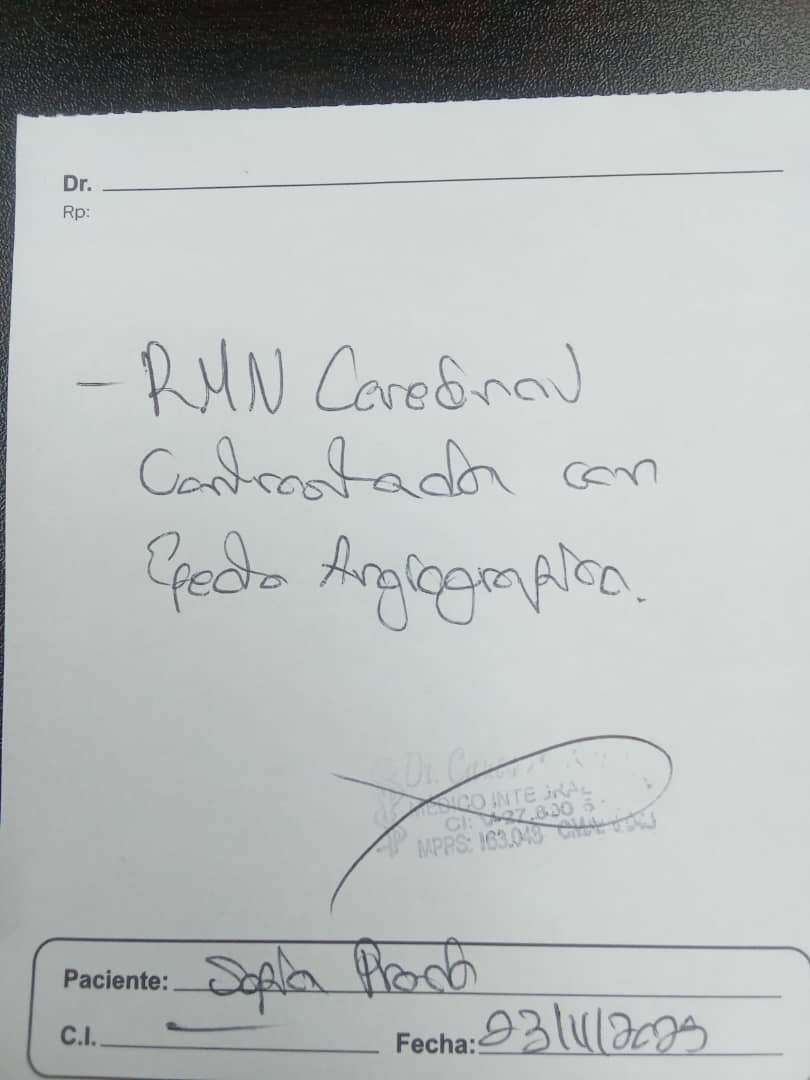 Dr.
Rp:
- RMN Cerebral
Contrastada con
Efecto Angiografico.
MEDICO INTEGRAL
MPPS: 163.048
Paciente: Sofia
C.I. —
Fecha: 23/11/2023